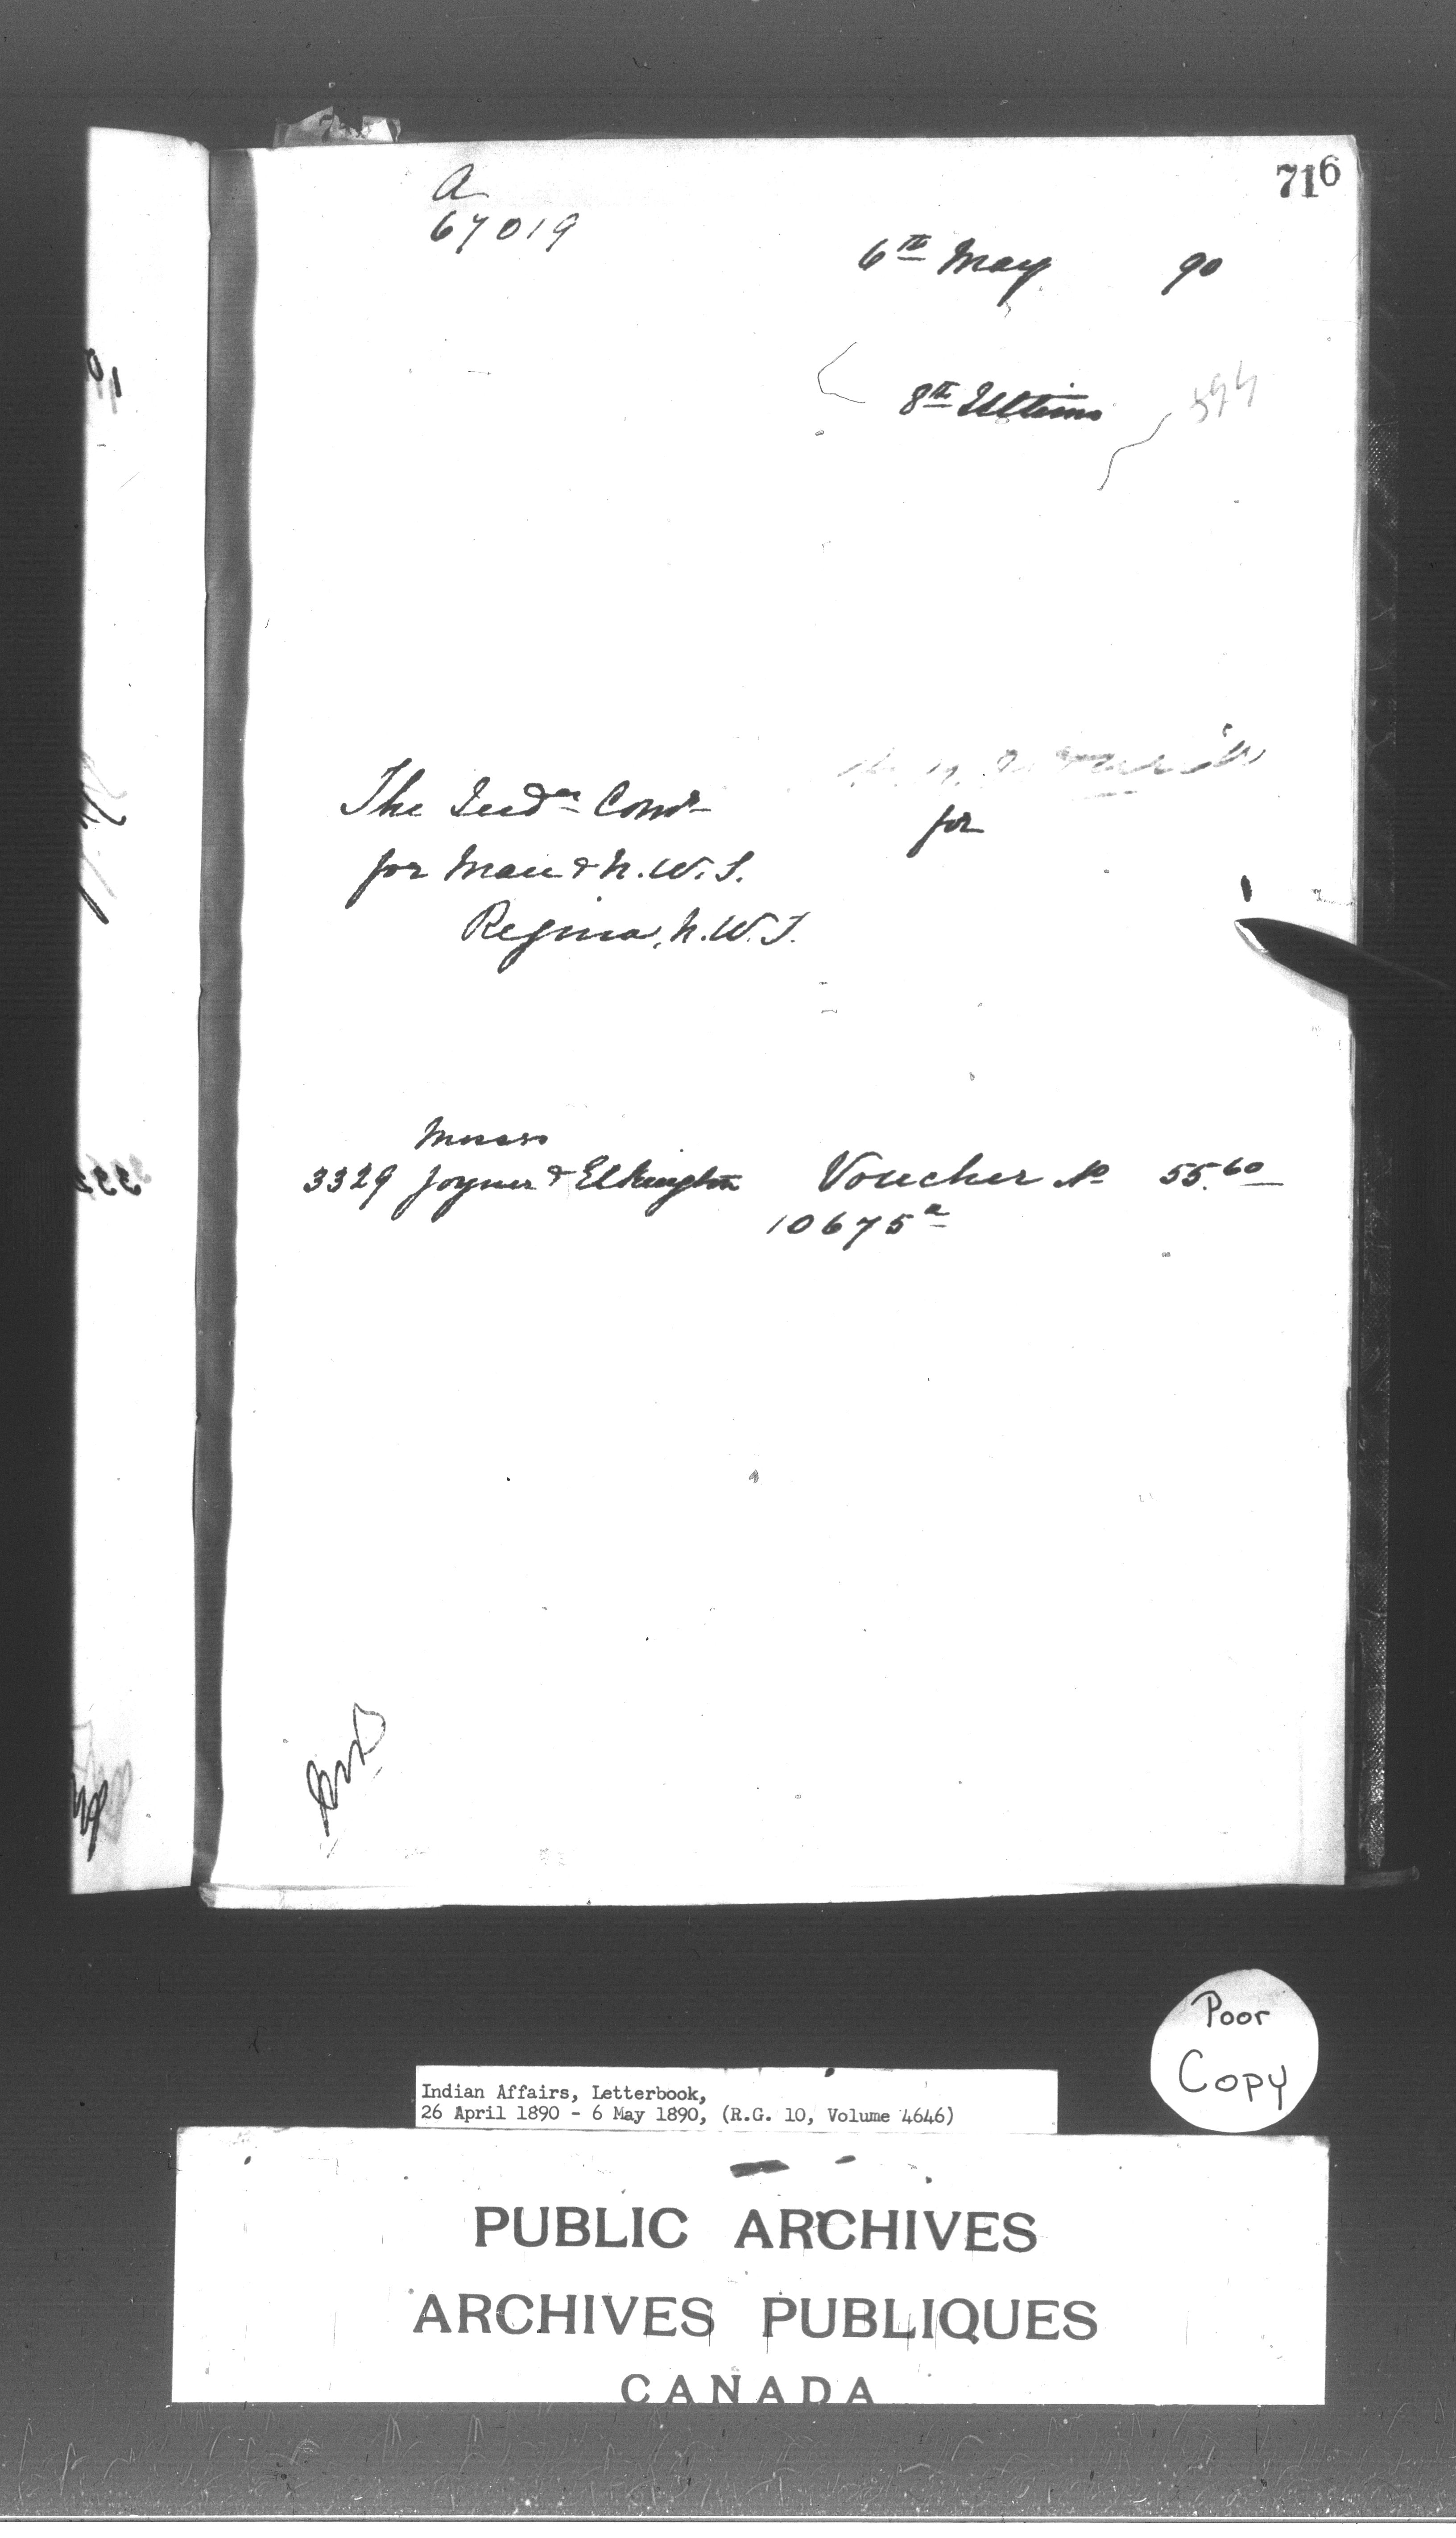 716
a
67019
6th May 90
8th Ultimo
The Indn Comr
for
for Man & N.W.T.
Regina, N.W.T.
Messrs
3329 Joyner & Elkington Voucher No 55.60
10675a
Poor
Copy
Indian Affairs, Letterbook,
26 April 1890 - 6 May 1890, (R.G. 10, Volume 4646)
PUBLIC ARCHIVES
ARCHIVES PUBLIQUES
CANADA